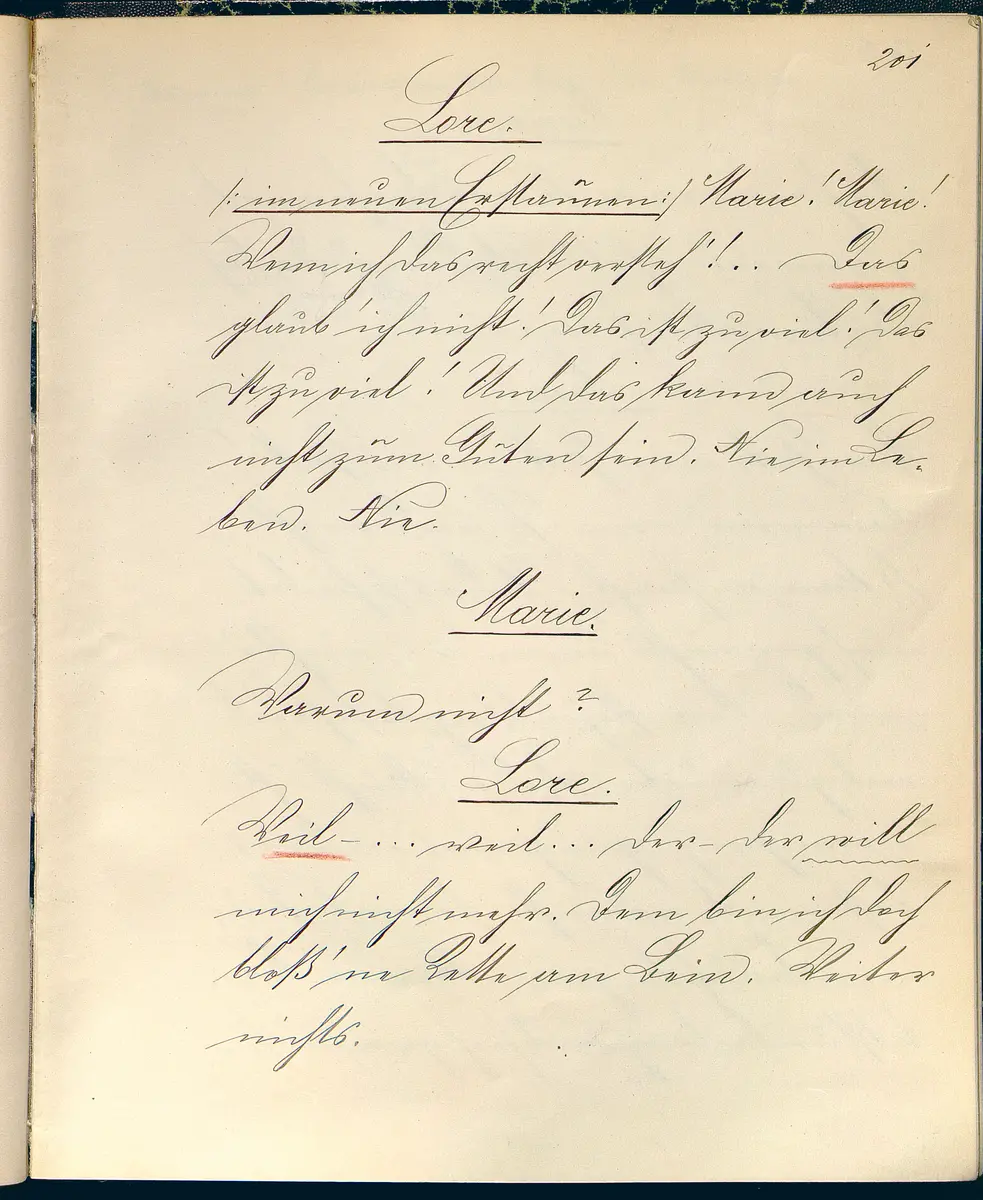 201
Lore.
/: im neuen Erstaunen :/ Marie! Marie!
Wenn ich das recht versteh'!.. Das
glaub' ich nicht! Das ist zu viel! Das
ist zu viel! Und das kann auch
nicht zum Guten sein. Nie im Le-
ben. Nie.
Marie.
Warum nicht?
Lore.
Weil – ... weil... der – der will
mich nicht mehr. Dem bin ich doch
bloß 'ne Kette am Bein. Weiter
nichts.